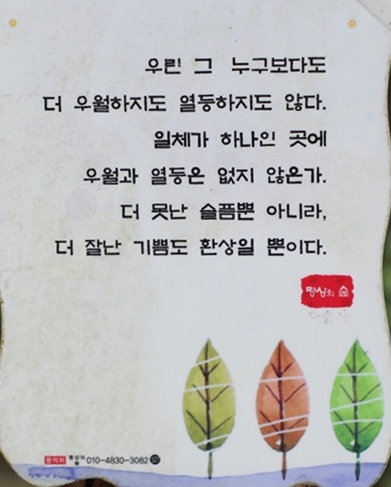 우린 그 누구보다도
더 우월하지도 열등하지도 않다.
일체가 하나인 곳에
우월과 열등은 없지 않은가.
더 못난 슬픔뿐 아니라,
더 잘난 기쁨도 환상일 뿐이다.
명상의 숲
문의처 명상의숲 010-4830-3082